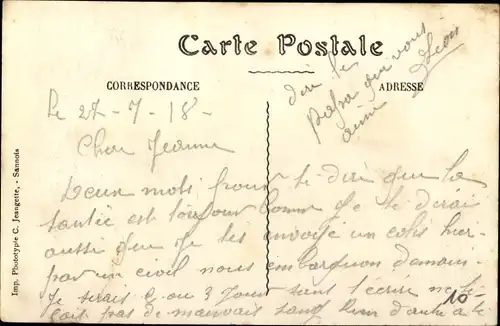 Carte Postale
CORRESPONDANCE
ADRESSE
Le 27-7-18-
Cher Jeanne
Deux mots pour te dire que la
santée est toujour bonne Je te dirais
aussi que Je tes envoyé un colis hier
par un civil nous embarquon demain
Je serais 2 ou 3 Jour sans t'écrire ne te
fais pas de mauvais sang Rien d'autre a te
dire le
papa qui vous
aime
Léon
10
Imp. Phototypie C. Jeangette, - Sannois